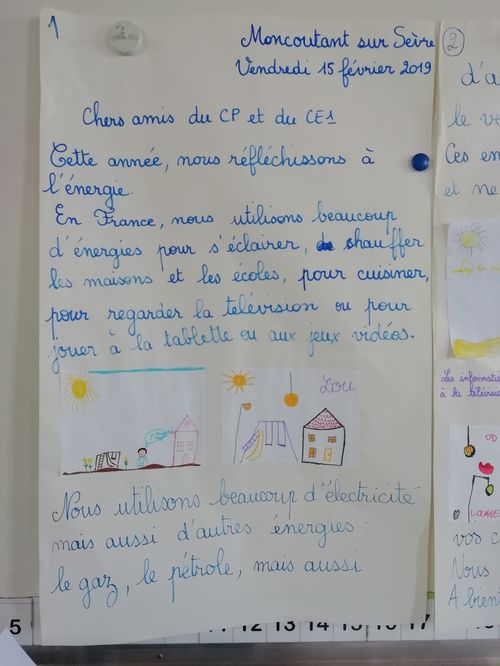 1
Moncoutant sur Sèvre
Vendredi 15 février 2019
Chers amis du CP et du CE1
Cette année, nous réfléchissons à
l'énergie.
En France, nous utilisons beaucoup
d'énergies pour s'éclairer, chauffer
les maisons et les écoles, pour cuisiner,
pour regarder la télévision ou pour
jouer à la tablette ou aux jeux vidéos.
Lou
Nous utilisons beaucoup d'électricité
mais aussi d'autres énergies :
le gaz, le pétrole, mais aussi
2
d'a
le ve
Ces en
et ne
Les informati
à la télévisi
vos c
Nous
A bien
5
11 12 13 14 15 16 17